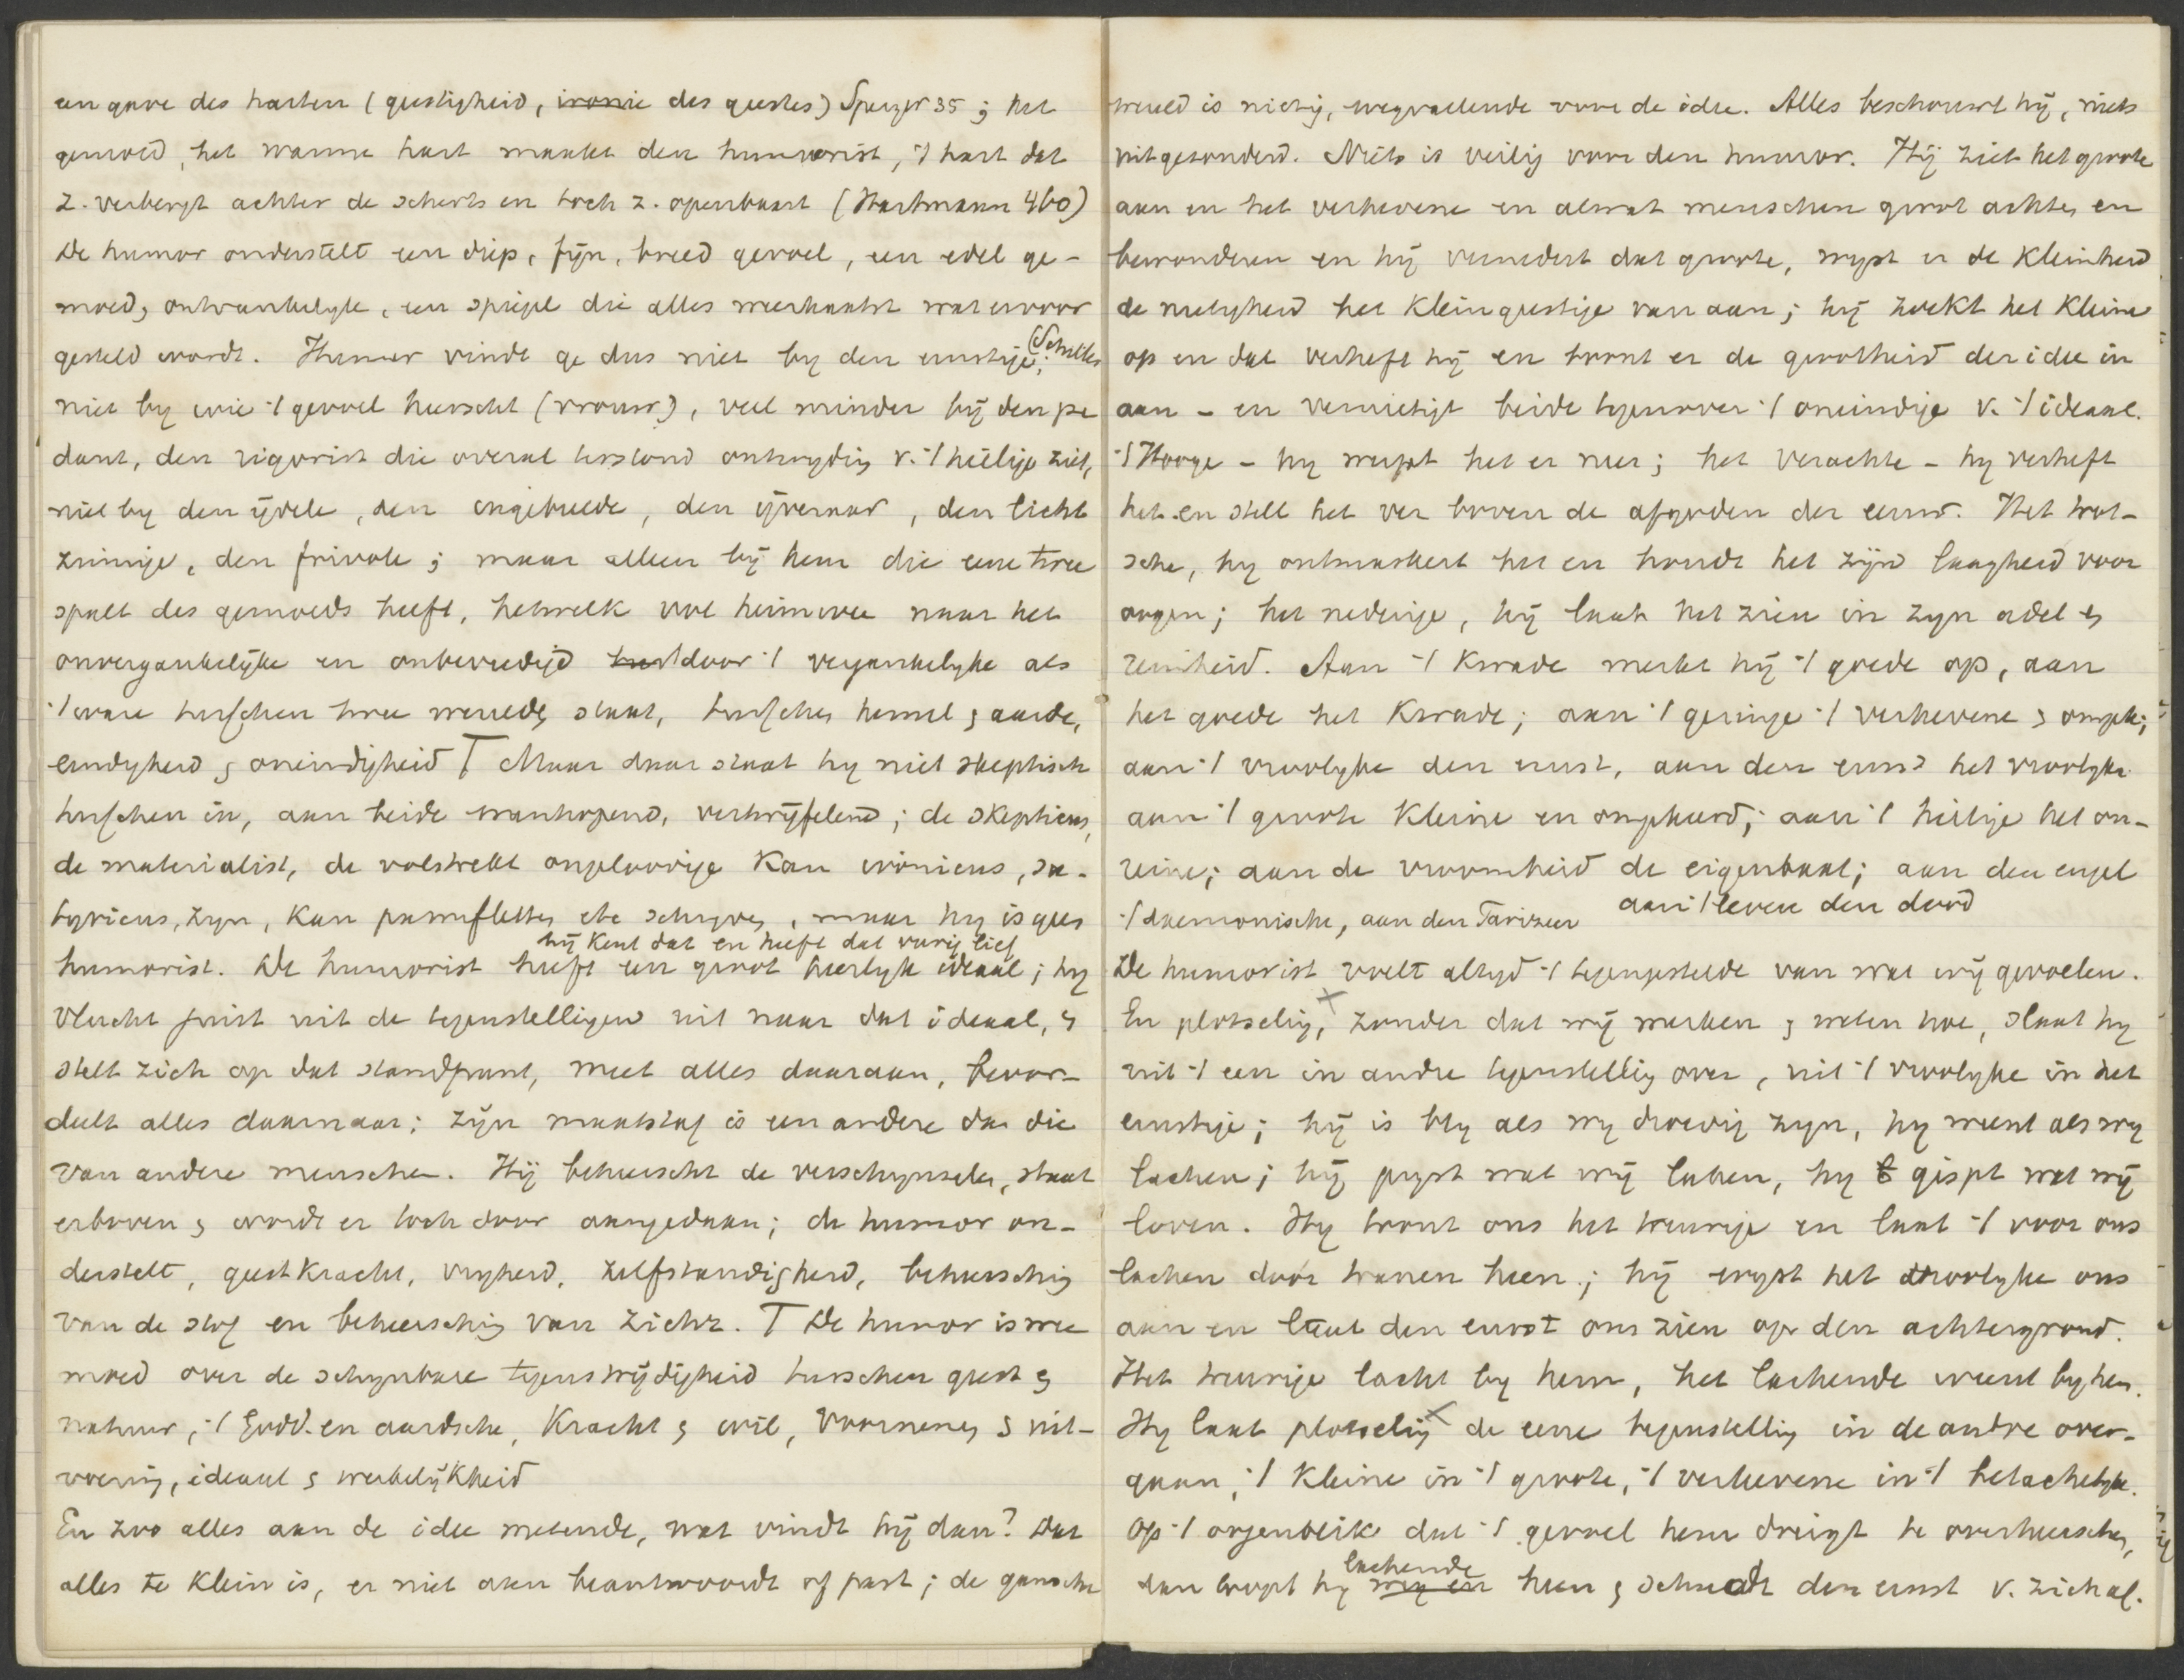 een gave des harten (geestigheid, ironie des geestes) Spenzer 35; het
gemoed, het warme hart maakt den humorist, 't hart dat
z. verbergt achter de scherts en toch z. openbaart (Hartmann 460)
De humor onderstelt een diep, fijn, breed gevoel, een edel ge-
moed, ontvankelijk, een spiegel die alles weerkaatst wat ervoor
gesteld wordt. Humor vindt ge dus niet by den ernstige, (Schiller
niet by wie 't gevoel heerscht (vrouw), veel minder bij den pe
dant, den rigorist die overal terstond ontwyding v. 't heilige ziet,
niet by den ijdele, den ingebeelde, den ijveraar, den licht
zinnige, den frivole; maar alleen bij hem die eene twee
spalt des gemoeds heeft, hetwelk vol heimwee naar het
onvergankelijke en onbevredigd door 't vergankelyke als
't ware tusschen twee werelden staat, tusschen hemel en aarde,
eindigheid en oneindigheid T Maar daar staat hy niet skeptisch
tusschen in, aan beide wanhopend, vertwijfelend; de skepticus,
de materialist, de volstrekt ongeloovige kan ironicus, sa-
tyricus, zyn, kan pamfletten etc schryven, maar hy is geen
hij kent dat en heeft dat vurig lief
humorist. De humorist heeft een groot heerlyk ideaal; hy
vlucht juist uit de tegenstellingen uit naar dat ideaal, en
stelt zich op dat standpunt, meet alles daaraan, beoor-
deelt alles daarnaar; zijn maatstaf is een andere dan die
van andere menschen. Hij beheerscht de verschynselen, staat
erboven en wordt er toch door aangedaan; de humor on-
derstelt, geestkracht, vryheid, zelfstandigheid, beheersching
van de stof en beheersching van zichz. T De humor is wee
moed over de schynbare tegenstrijdigheid tusschen geest en
natuur, 't Godd. en aardsche, kracht en wil, voornemen en uit-
voering, ideaal en werkelijkheid
En zoo alles aan de idee metende, wat vindt hij dan? Dat
alles te klein is, er niet aan beantwoordt of past; de gansche
wereld is nietig, wegvallende voor de idee. Alles beschouwt hij, niets
uitgezonderd. Niets is veilig voor den humor. Hij ziet het groote
aan en het verhevene en alwat menschen groot achten en
bewonderen en hij vernedert dat groote, wyst er de kleinheid
de nietigheid het kleingeestige van aan; hij zoekt het kleine
op en dat verheft hij en toont er de grootheid der idee in
aan - en vernietigt beide tegenover 't oneindige v. 't ideaal.
't Hooge - hy werpt het er neer; het verachte - hy verheft
het en stelt het ver boven de afgoden der eeuw. Het trot-
sche, hy ontmaskert het en houdt het zijn laagheid voor
oogen; het nederige, hij laat het zien in zyn adel en
reinheid. Aan 't kwade merkt hij 't goede op, aan
het goede het kwade; aan 't geringe 't verhevene en omgek;
aan 't vroolyke den ernst, aan den ernst het vroolyke
aan 't groote kleine en omgekeerd; aan 't heilige het on-
reine; aan de vroomheid de eigenbaat; aan den engel
't daemonische, aan den Farizeer aan 't leven den dood
De humorist voelt altyd 't tegengestelde van wat wij gevoelen.
En plotselijg, zonder dat wij merken en weten hoe, slaat hy
uit 't een in andre tegenstelling over, uit 't vroolyke in het
ernstige; hij is bly als wy droevig zyn, hy weent als wy
lachen; hij pryst wat wij laken, hy gispt wat wij
loven. Hy toont ons het treurige en laat 't voor ons
lachen door tranen heen; hij wyst het vroolyke ons
aan en laat den ernst ons zien op den achtergrond.
Het treurige lacht by hem, het lachende weent by hem.
Hy laat plotseling de eene tegenstelling in de andre over-
gaan, 't kleine in 't groote, 't verhevene in 't belachelyke.
Op 't oogenblik dat 't gevoel hem dreigt te overheerschen,
lachende
dan loopt hy weg en heen en schudt den ernst v. zich af.